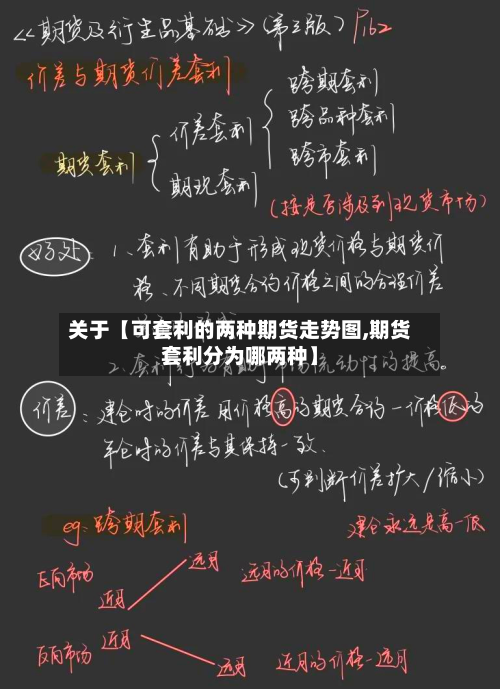 《期货及衍生品基础》(第三版) P162
价差与期货价差套利
期货套利
价差套利
跨期套利
跨品种套利
跨市套利
期现套利
(按是否涉及到现货市场)
好处:1、套利有助于形成现货价格与期货价
格、不同期货合约价格之间的合理价差
关于【可套利的两种期货走势图,期货
套利分为哪两种】
2、套利 流动性的提高。
价差:建仓时的价差用价格高的期货合约一价格低的
平仓时的价差与其保持一致.
(可判断价差扩大/缩小)
eg:跨期套利
建仓永远是高一低
正向市场
近月
远月
远月的价格-近月
反向市场
近月
远月
近月的价格-远月